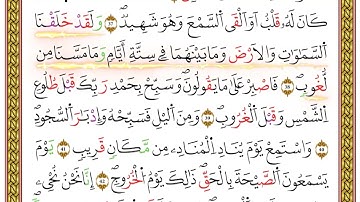 كَانَ لَهُ قَلْبٌ اَوْ اَلْقَى السَّمْعَ وَهُوَ شَه۪يدٌ ﴿37﴾ وَلَقَدْ خَلَقْنَا
السَّمٰوَاتِ وَالْاَرْضَ وَمَا بَيْنَهُمَا ف۪ي سِتَّةِ اَيَّامٍ وَمَا مَسَّنَا مِنْ
لُغُوبٍ ﴿38﴾ فَاصْبِرْ عَلٰى مَا يَقُولُونَ وَسَبِّحْ بِحَمْدِ رَبِّكَ قَبْلَ طُلُوعِ
الشَّمْسِ وَقَبْلَ الْغُرُوبِ ﴿39﴾ وَمِنَ الَّيْلِ فَسَبِّحْهُ وَاَدْبَارَ السُّجُودِ
﴿40﴾ وَاسْتَمِعْ يَوْمَ يُنَادِ الْمُنَادِ مِنْ مَكَانٍ قَر۪يبٍ ﴿41﴾ يَوْمَ
يَسْمَعُونَ الصَّيْحَةَ بِالْحَقِّ ذٰلِكَ يَوْمُ الْخُرُوجِ ﴿42﴾ اِنَّا نَحْنُ نُحْي۪